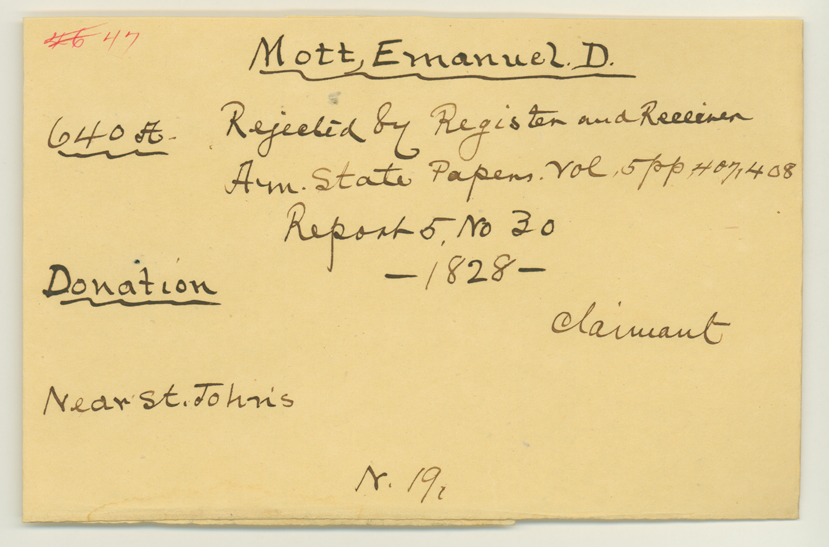 46 47
Mott, Emanuel. D.
640 A. Rejected by Register and Receiver
Am. State Papers. Vol. 5 pp 407, 408
Report 5, No 30
Donation
—1828—
Claimant
Near St. Johns
N. 19,